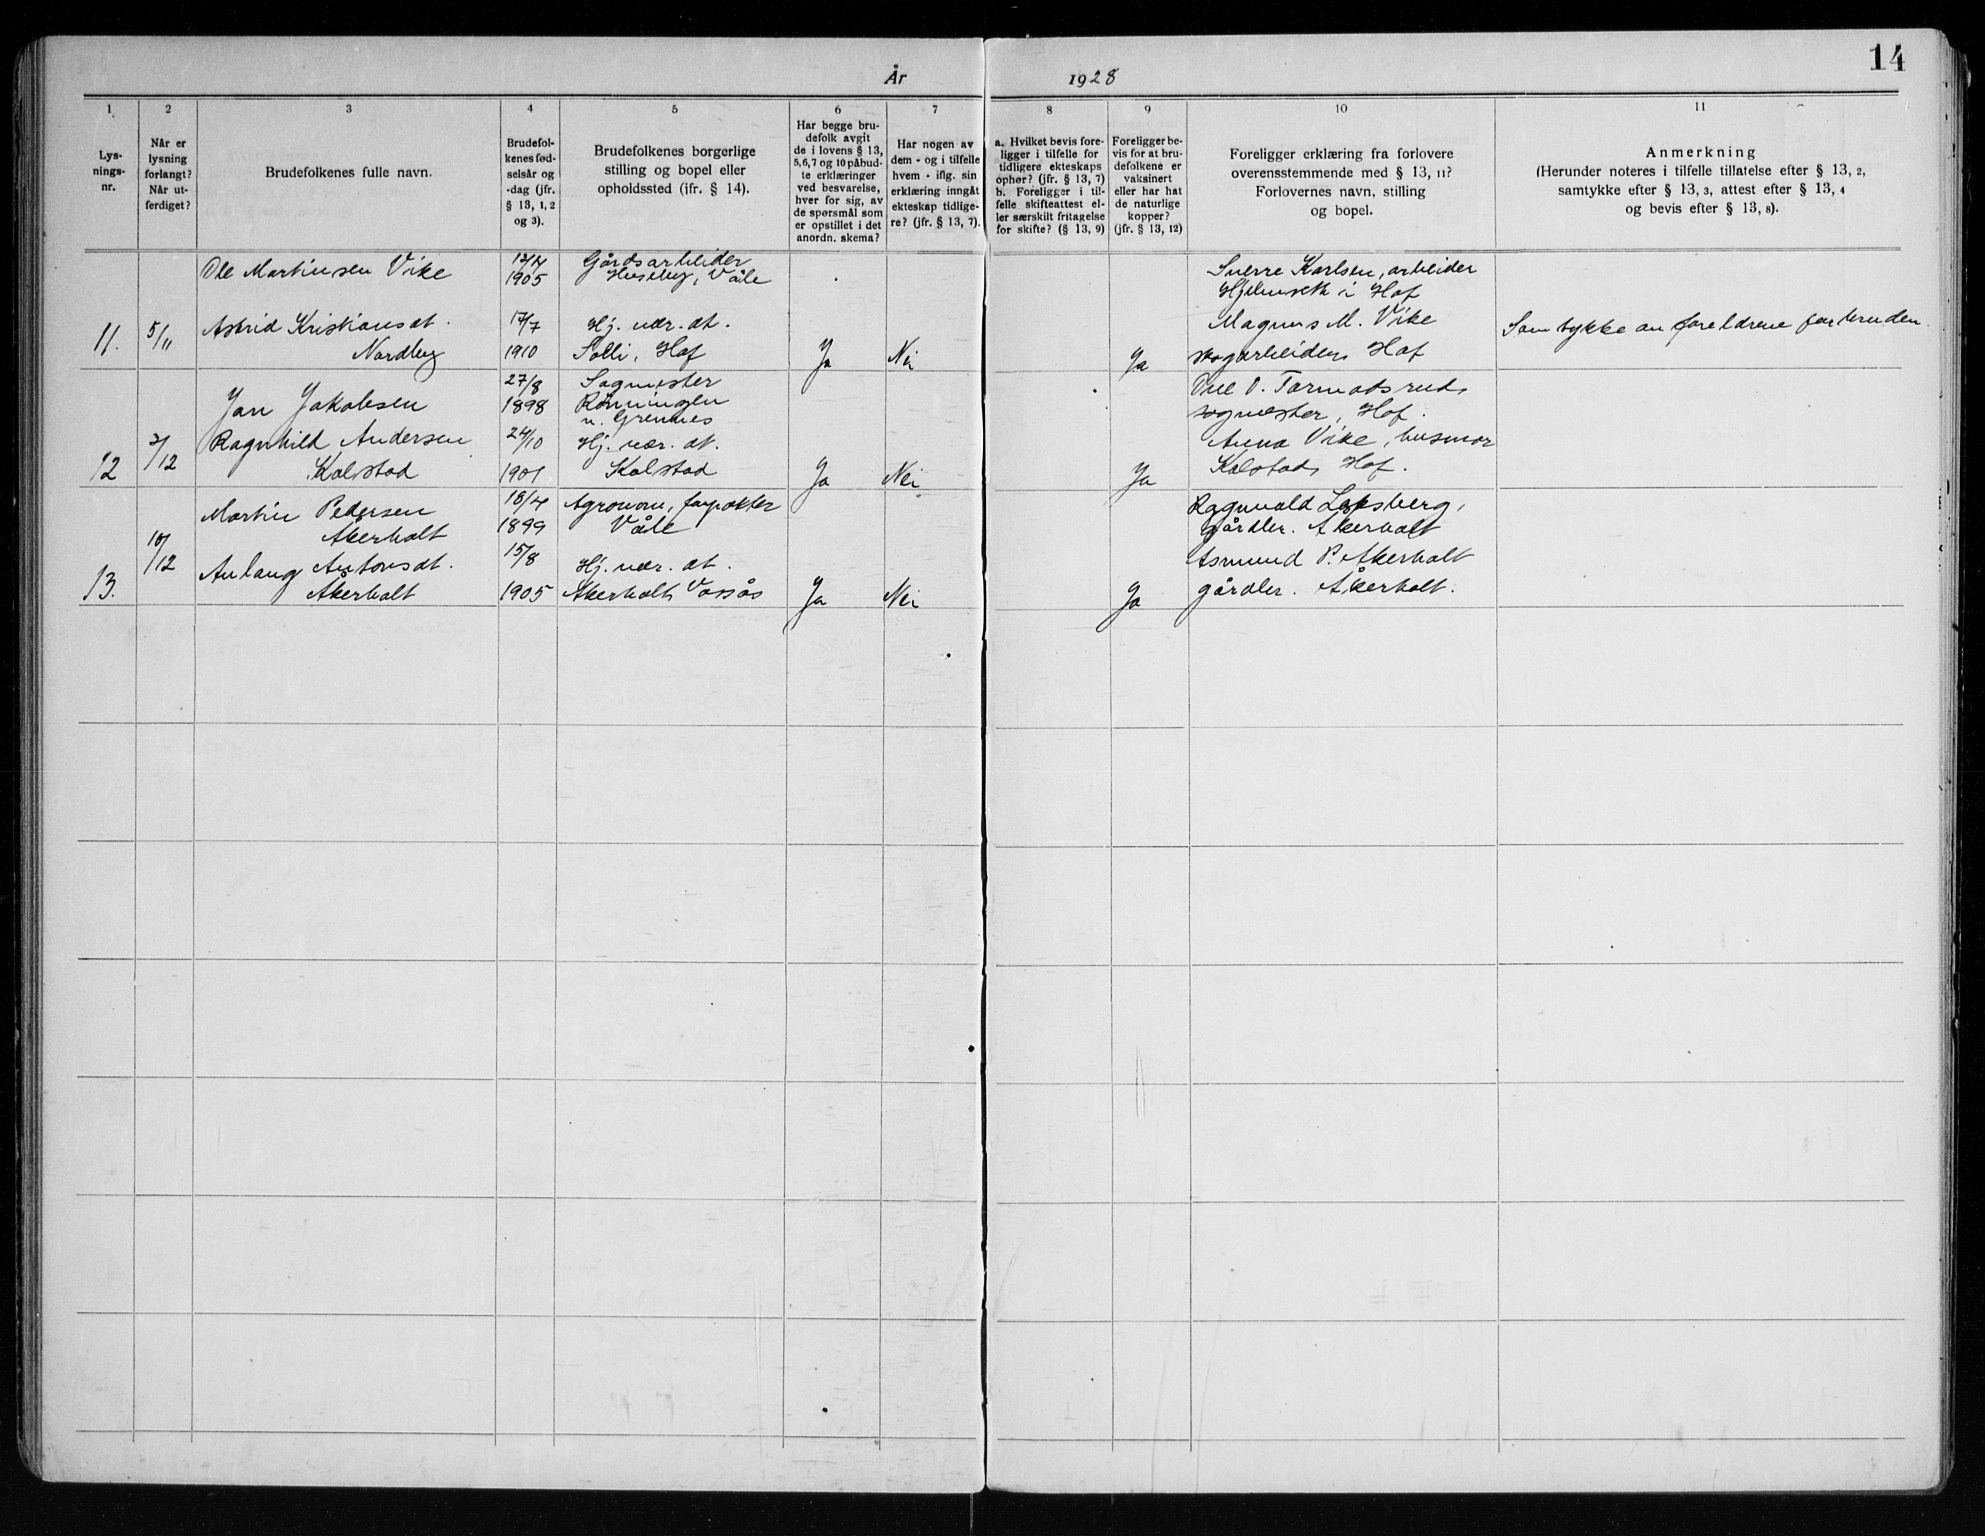 14
År 1928
1 2 3 4 5 6 7 8 9 10 11
Lys-
nings-
nr.
Når er
lysning
forlangt?
Når ut-
ferdiget?
Brudefolkenes fulle navn.
Brudefol-
kenes fød-
selsår og
-dag (jfr.
§ 13, 1, 2
og 3).
Brudefolkenes borgerlige
stilling og bopel eller
opholdssted (jfr. § 14).
Har begge bru-
defolk avgit
de i lovens § 13,
5,6,7 og 10 påbud-
te erklæringer
ved besvarelse,
hver for sig, av
de spørsmål som
er opstillet i det
anordn. skema?
Har nogen av
dem - og i tilfelle
hvem - iflg. sin
erklæring inngåt
ekteskap tidlige-
re? (jfr. § 13, 7).
a. Hvilket bevis fore-
ligger i tilfelle for
tidligere ekteskaps
ophør? (jfr. § 13, 7)
b. Foreligger i til-
felle skifteattest el-
ler særskilt fritagelse
for skifte? (§ 13, 9)
Foreligger be-
vis for at bru-
defolkene er
vaksinert
eller har hat
de naturlige
kopper?
(jfr. § 13, 12)
Foreligger erklæring fra forlovere
overensstemmende med § 13, 11?
Forlovernes navn, stilling
og bopel.
Anmerkning
(Herunder noteres i tilfelle tillatelse efter § 13, 2,
samtykke efter § 13, 3, attest efter § 13, 4
og bevis efter § 13, 8).
11.
5/11
Ole Martinsen Vike
Astrid Kristiansdt.
Nordby
1905
17/7
1910
Gårdsarbeider
Huseby, Våle
Hj. vær. dt.
Solli, Hof
Ja
Nei
Ja
Sverre Karlsen, arbeider
i Hof
Magnus M. Vike
skogarbeider, Hof
Samtykke av foreldrene for bruden.
12
/12
Jan Jakobsen
Ragnhild Andersen
Kolstad
27/8
1898
24/10
1901
Sagmester
Rønningen
n. Grennes
Hj. vær. dt.
Kolstad
Ja
Nei
Ja
O. Tormodsrud,
sagmester, Hof.
Anna Vike, husmor
Kolstad, Hof.
13.
10/12
Martin Pedersen
Åkerholt
Aslaug Antonsdt.
Åkerholt
18/4
1899
15/8
1905
Agronom, forpakter
Våle
Hj. vær. dt.
Åkerholt, Vassås
Ja
Nei
Ja
Ragnvald Løksberg,
gårdbr. Åkerholt
Asmund P. Åkerholt
gårdbr. Åkerholt.